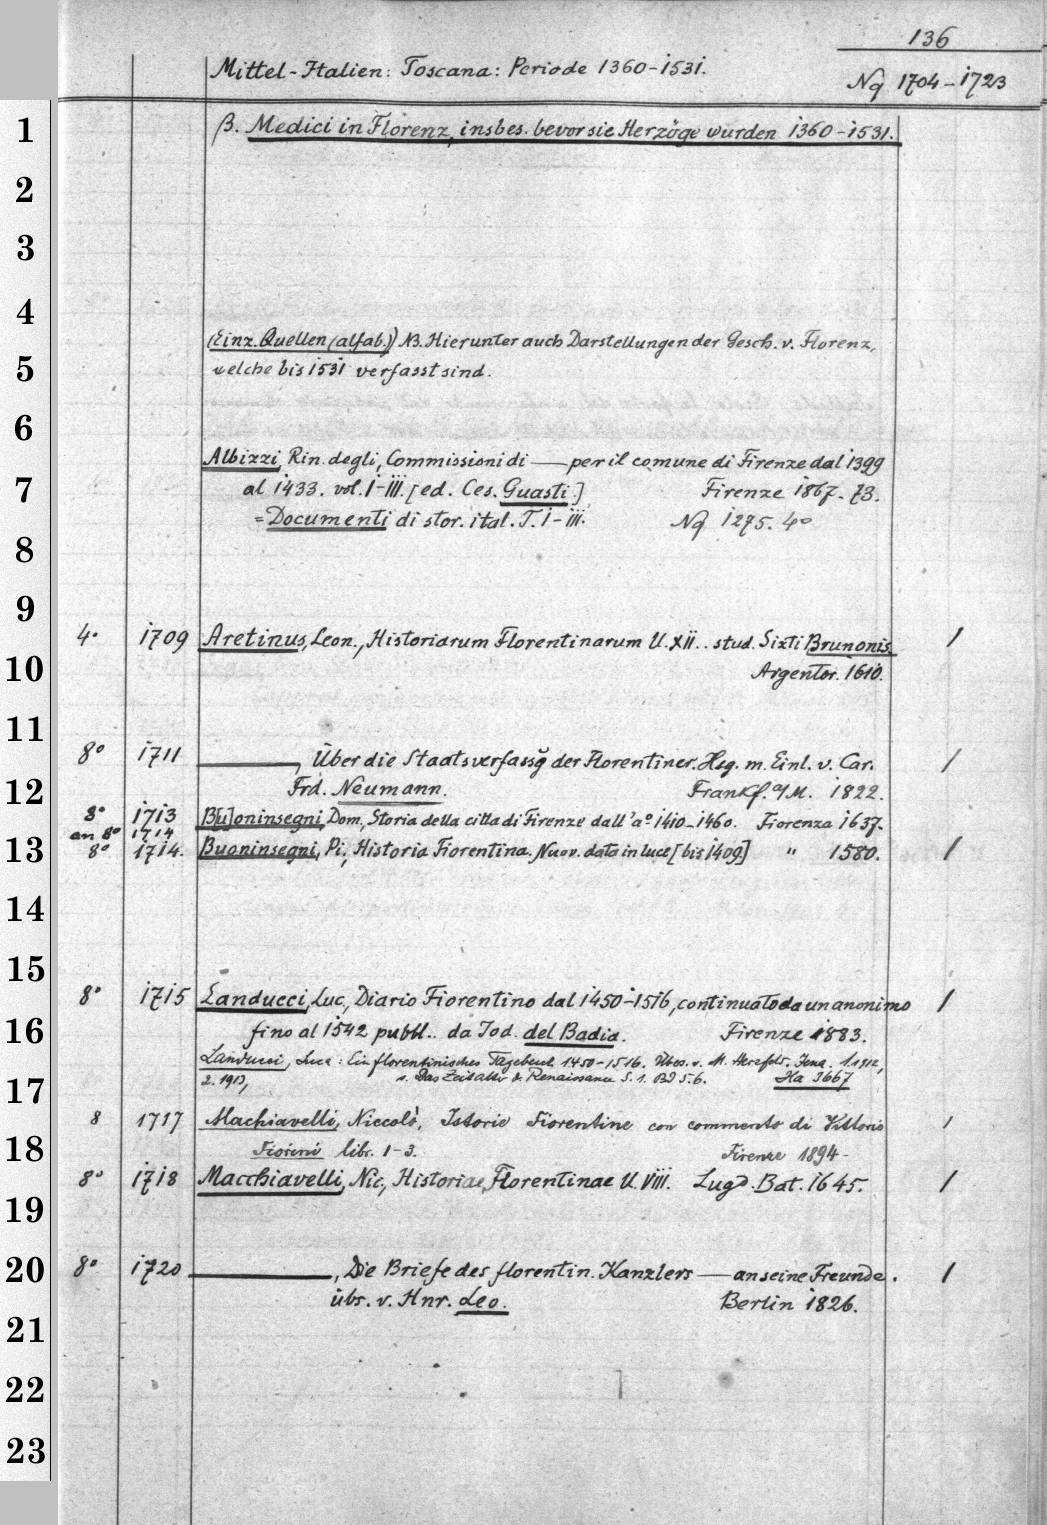 136
Mittel-Italien: Toscana: Periode 1360-1531.
Nq 1704-1723
1 β. Medici in Florenz, insbes. bevor sie Herzöge wurden 1360-1531.
2
3
4
(Einz. Quellen (alfab.)) NB. Hierunter auch Darstellungen der Gesch. v. Florenz,
5 welche bis 1531 verfasst sind.
6
Albizzi, Rin. degli, Commissioni di — per il comune di Firenze dal 1399
7 al 1433. vol. I-III. [ed. Ces. Guasti.] Firenze 1867-73.
= Documenti di stor. ital. T. I-III. Nq 1275. 4o
8
9
4° 1709 Aretinus, Leon., Historiarum Florentinarum ll. XII.. stud. Sixti Brunonis. /
10 Argentor. 1610.
11
8° 1711 ———, Über die Staatsverfassg der Florentiner. Hsg. m. Einl. v. Car. /
12 Frd. Neumann. Frankf. a/M. 1822.
8° 1713 B[u]oninsegni, Dom., Storia della citta di Firenze dall'a° 1410-1460. Fiorenza 1637.
an 8° 1714
13 8° 1714. Buoninsegni, Pi., Historia Fiorentina. Nuov. data in luce [bis 1409] " 1580. /
14
15
8° 1715 Landucci, Luc., Diario Fiorentino dal 1450-1516, continuato da un anonimo /
16 fino al 1542 pubbl.. da Jod. del Badia. Firenze 1883.
Landucci, Luca: Ein florentinisches Tagebuch 1450-1516. Übers. v. M. Herzfeld. Jena. 1. 1912,
17 2. 1913, s. Das Zeitalter d. Renaissance S. 1. Bd 5.6. Ha 3667
8 1717 Machiavelli, Niccolò, Istorie Fiorentine con commento di Vittorio /
18 Fiorini libr. 1-3. Firenze 1894-
8° 1718 Macchiavelli, Nic., Historiae Florentinae ll. VIII. Lugd. Bat. 1645. /
19
20 8° 1720 ———, Die Briefe des florentin. Kanzlers — an seine Freunde. /
übs. v. Hnr. Leo. Berlin 1826.
21
22
23